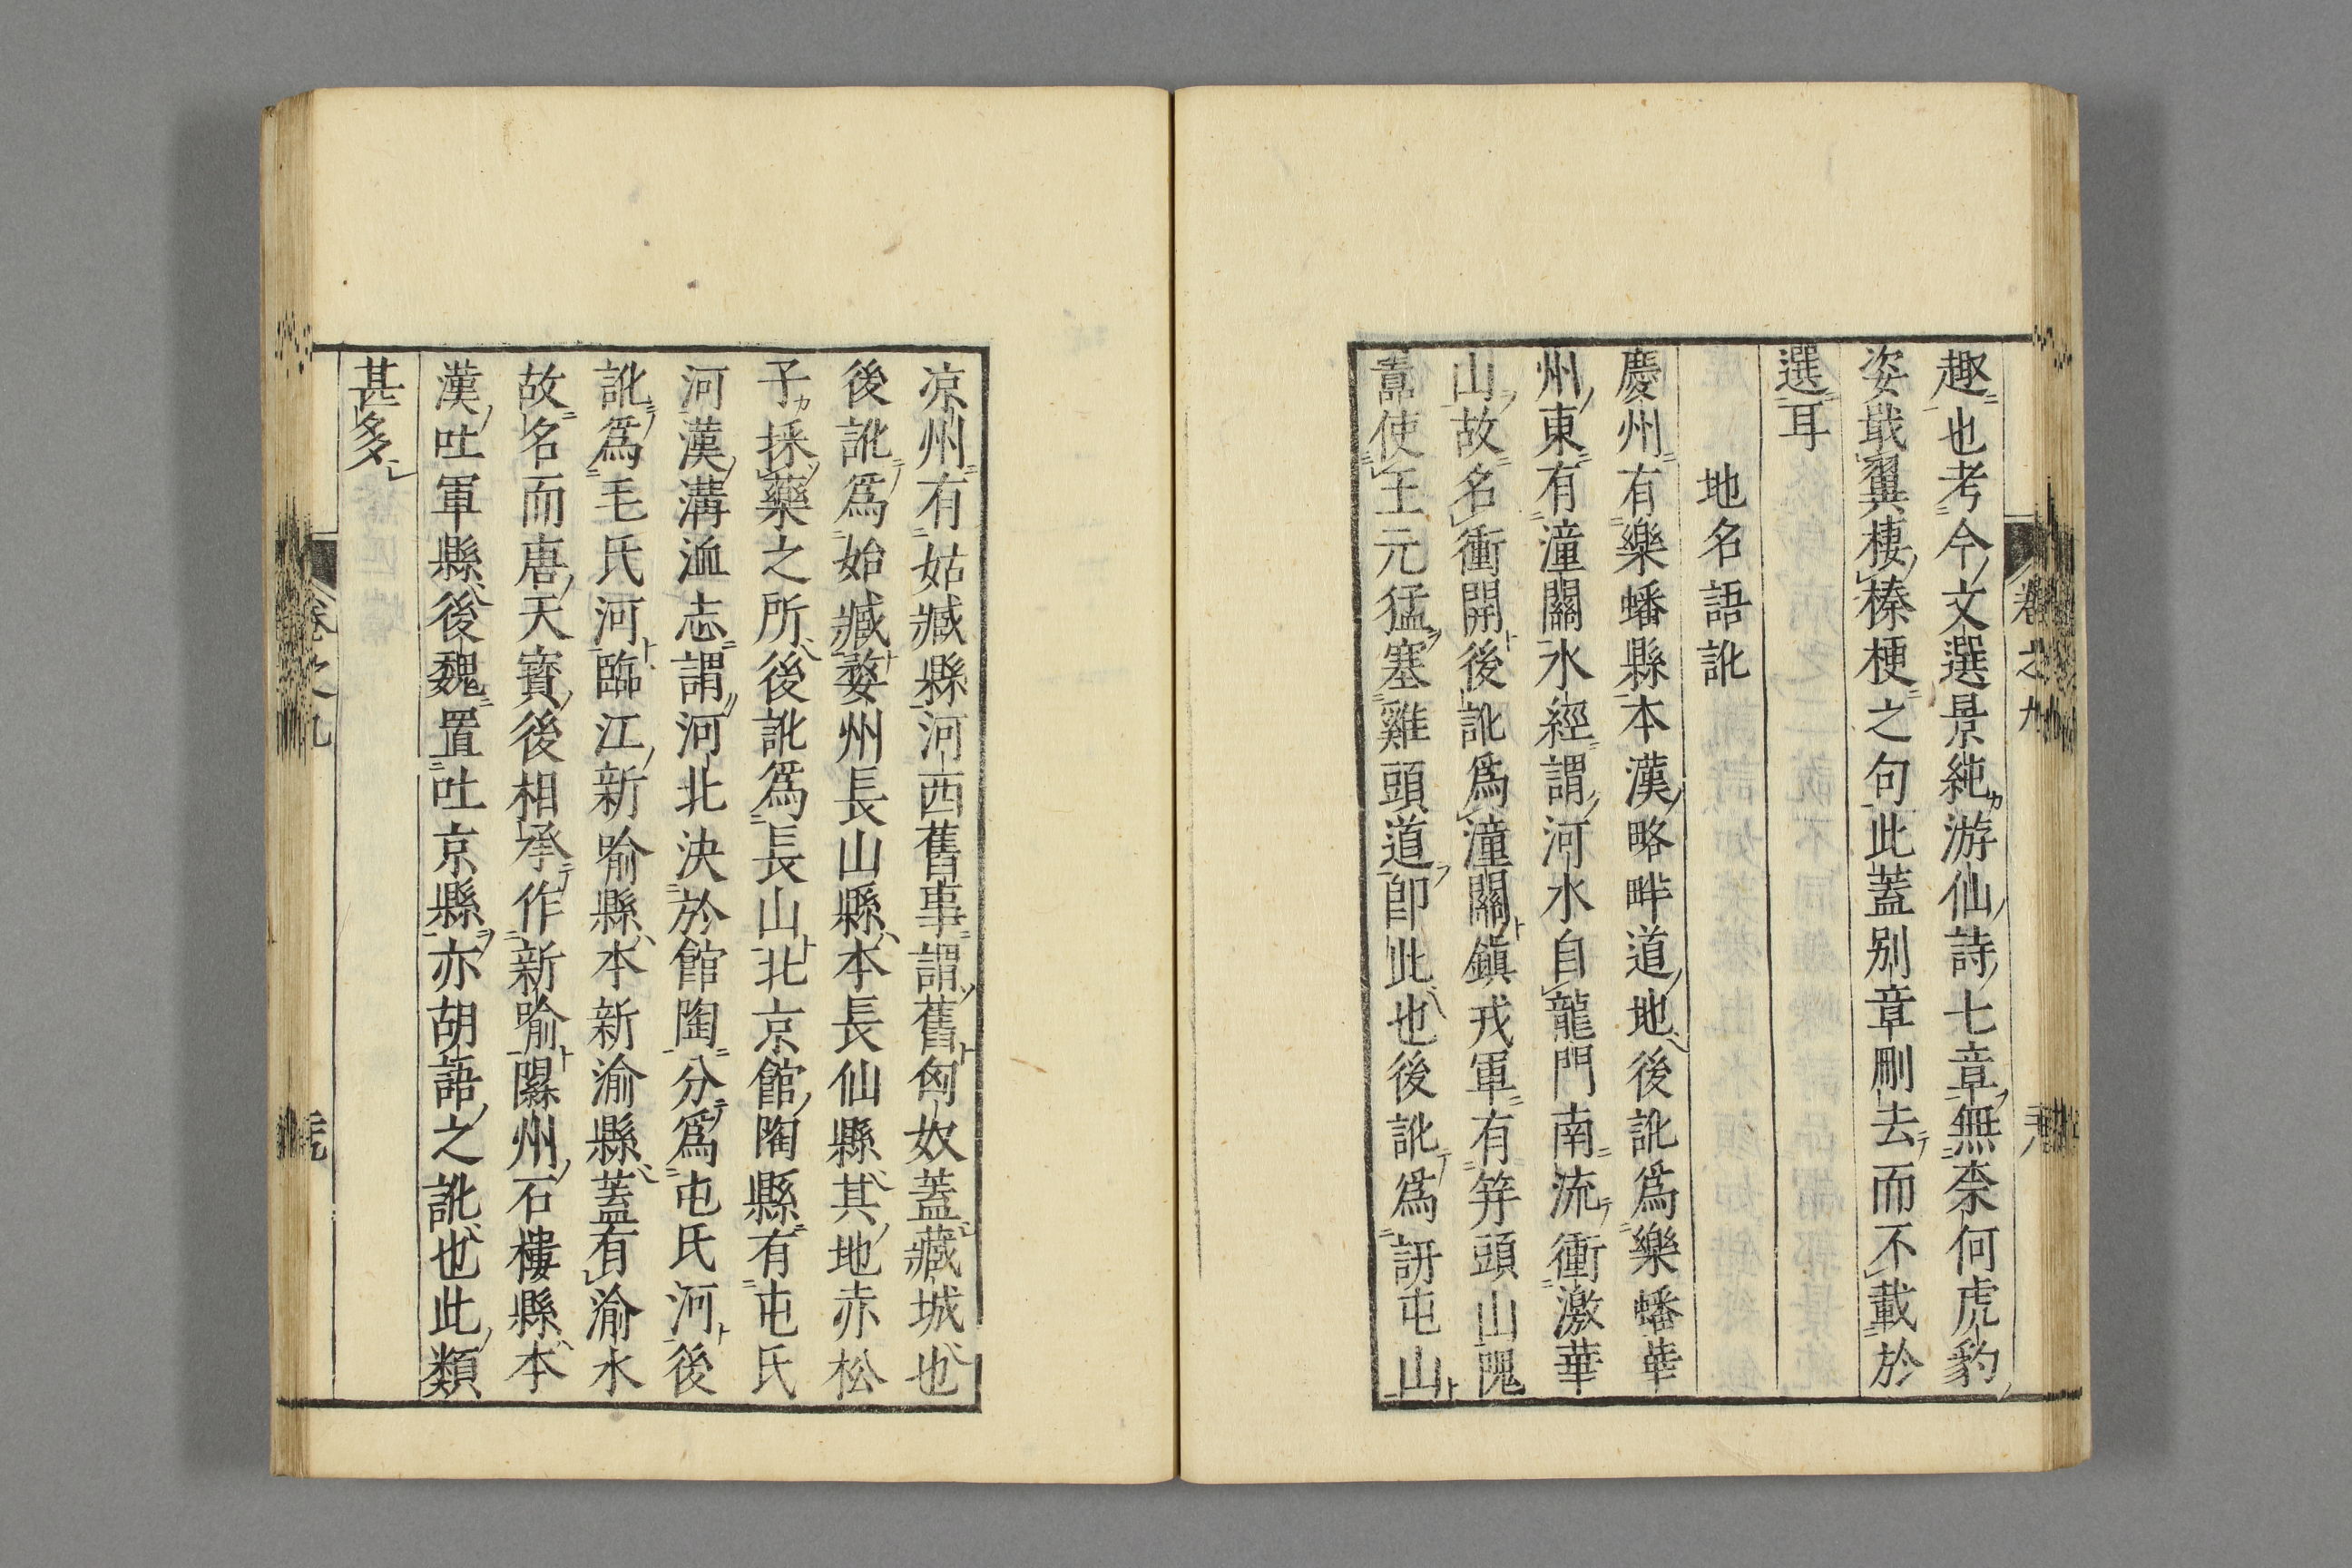 趣也考今文選景純游仙詩七章無柰何虎豹
姿戢翼棲榛梗之句此蓋別章刪去而不載於
選耳
地名語訛
慶州有樂蟠縣本漢略畔道地後訛爲樂蟠華
州東有潼關水經謂河水自龍門南流衝激華
山故名衝開後訛爲潼關鎮戎軍有笄頭山隗
囂使王元猛塞雞頭道卽此也後訛爲訮屯山
凉州有姑臧縣河西舊事謂舊匈奴蓋藏城也
後訛爲始臧婺州長山縣本長仙縣其地赤松
子採藥之所後訛爲長山北京館陶縣有屯氏
河漢溝洫志謂河北決於館陶分爲屯氏河後
訛爲毛氏河臨江新喻縣本新渝縣蓋有渝水
故名而唐天寳後相承作新喻隰州石樓縣本
漢吐軍縣後魏置吐京縣亦胡語之訛也此類
甚多
卷之九
卷之九